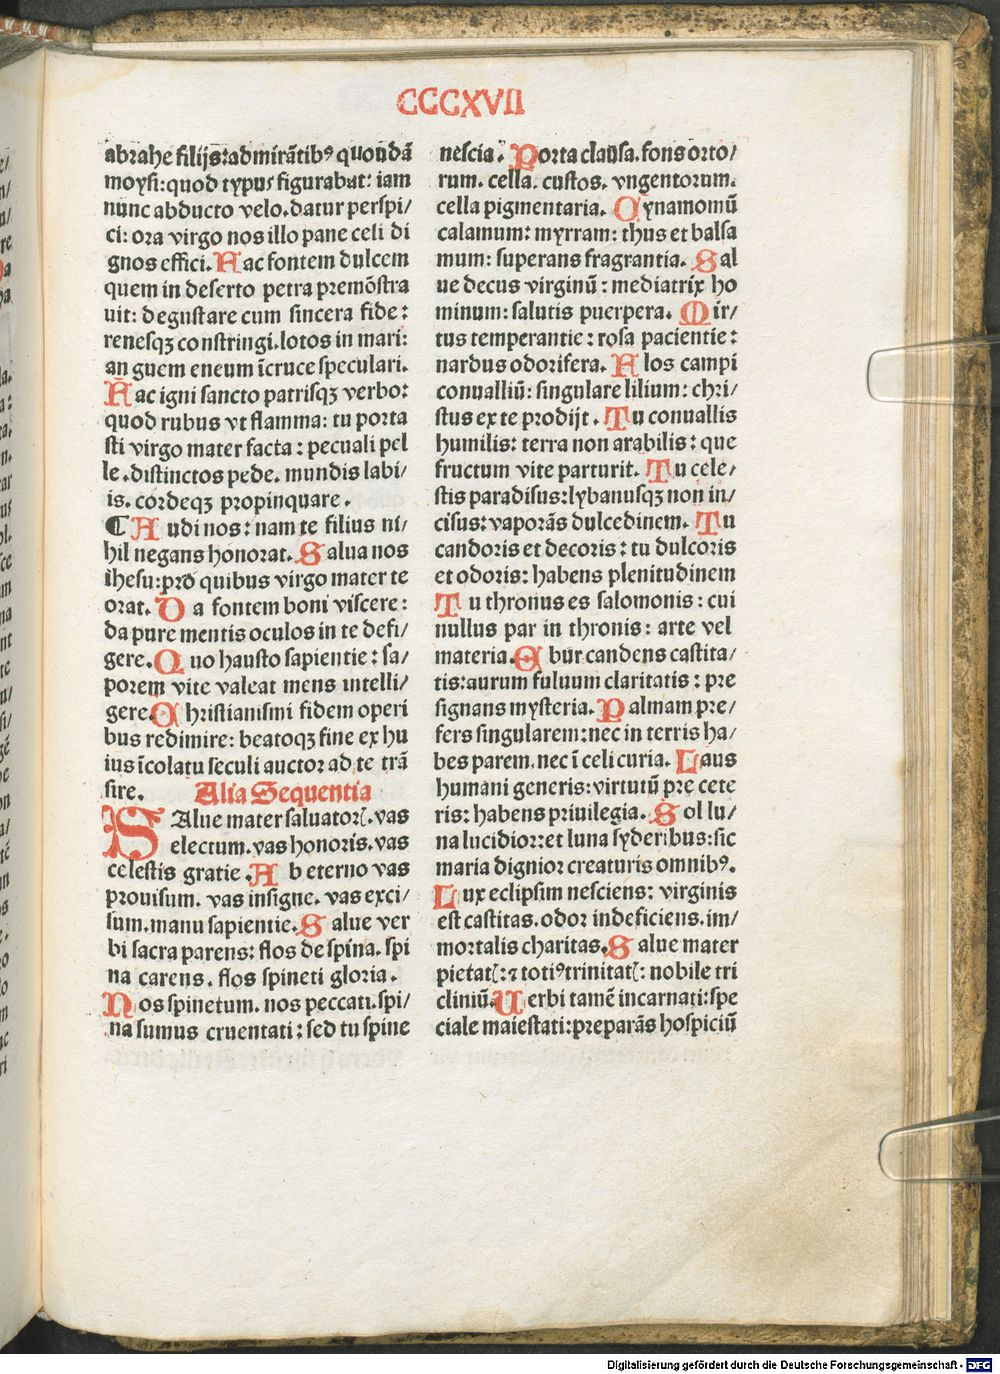 CCCXVII
abrahe filijs: admirātibꝰ quondā
moysi: quod typus figurabat: iam
nunc abducto velo. datur perspi/
ci: ora virgo nos illo pane celi di
gnos effici. Hac fontem dulcem
quem in deserto petra premōstra
uit: degustare cum sincera fide:
renesqꝫ constringi. lotos in mari:
anguem eneum īcruce speculari.
Hac igni sancto patrisqꝫ verbo:
quod rubus vt flamma: tu porta
sti virgo mater facta: pecuali pel
le. distinctos pede. mundis labi/
is. cordeqꝫ propinquare.
¶ Audi nos: nam te filius ni/
hil negans honorat. Salua nos
ihesu: pro quibus virgo mater te
orat. Da fontem boni viscere:
da pure mentis oculos in te defi/
gere. Quo hausto sapientie: sa/
porem vite valeat mens intelli/
gere. Christianismi fidem operi
bus redimire: beatoqꝫ fine ex hu
ius īcolatu seculi auctor ad te trā
sire. Alia Sequentia
SAlue mater saluatoꝝ. vas
electum. vas honoris. vas
celestis gratie. Ab eterno vas
prouisum. vas insigne. vas exci/
sum. manu sapientie. Salue ver
bi sacra parens: flos de spina. spi
na carens. flos spineti gloria.
Nos spinetum. nos peccati. spi/
na sumus cruentati: sed tu spine
nescia. Porta clausa. fons orto/
rum. cella. custos. vngentorum.
cella pigmentaria. Cynamomū
calamum: myrram: thus et balsa
mum: superans fragrantia. Sal
ue decus virginū: mediatrix ho
minum: salutis puerpera. Mir/
tus temperantie: rosa pacientie:
nardus odorifera. Flos campi
conualliū: singulare lilium: chri/
stus ex te prodijt. Tu conuallis
humilis: terra non arabilis: que
fructum vite parturit. Tu cele/
stis paradisus: lybanusqꝫ non in/
cisus: vaporās dulcedinem. Tu
candoris et decoris: tu dulcoris
et odoris: habens plenitudinem
Tu thronus es salomonis: cui
nullus par in thronis: arte vel
materia. Ebur candens castita/
tis: aurum fuluum claritatis: pre
signans mysteria. Palmam pre/
fers singularem: nec in terris ha/
bes parem. nec ī celi curia. Laus
humani generis: virtutū pre cete
ris: habens priuilegia. Sol lu/
na lucidior: et luna syderibus: sic
maria dignior creaturis omnibꝰ.
Lux eclipsim nesciens: virginis
est castitas. odor indeficiens. im/
mortalis charitas. Salue mater
pietatꝭ: ⁊ totiꝰ trinitatꝭ: nobile tri
cliniū. Uerbi tamē incarnati: spe
ciale maiestati: preparās hospiciū
Digitalisierung gefördert durch die Deutsche Forschungsgemeinschaft - DFG